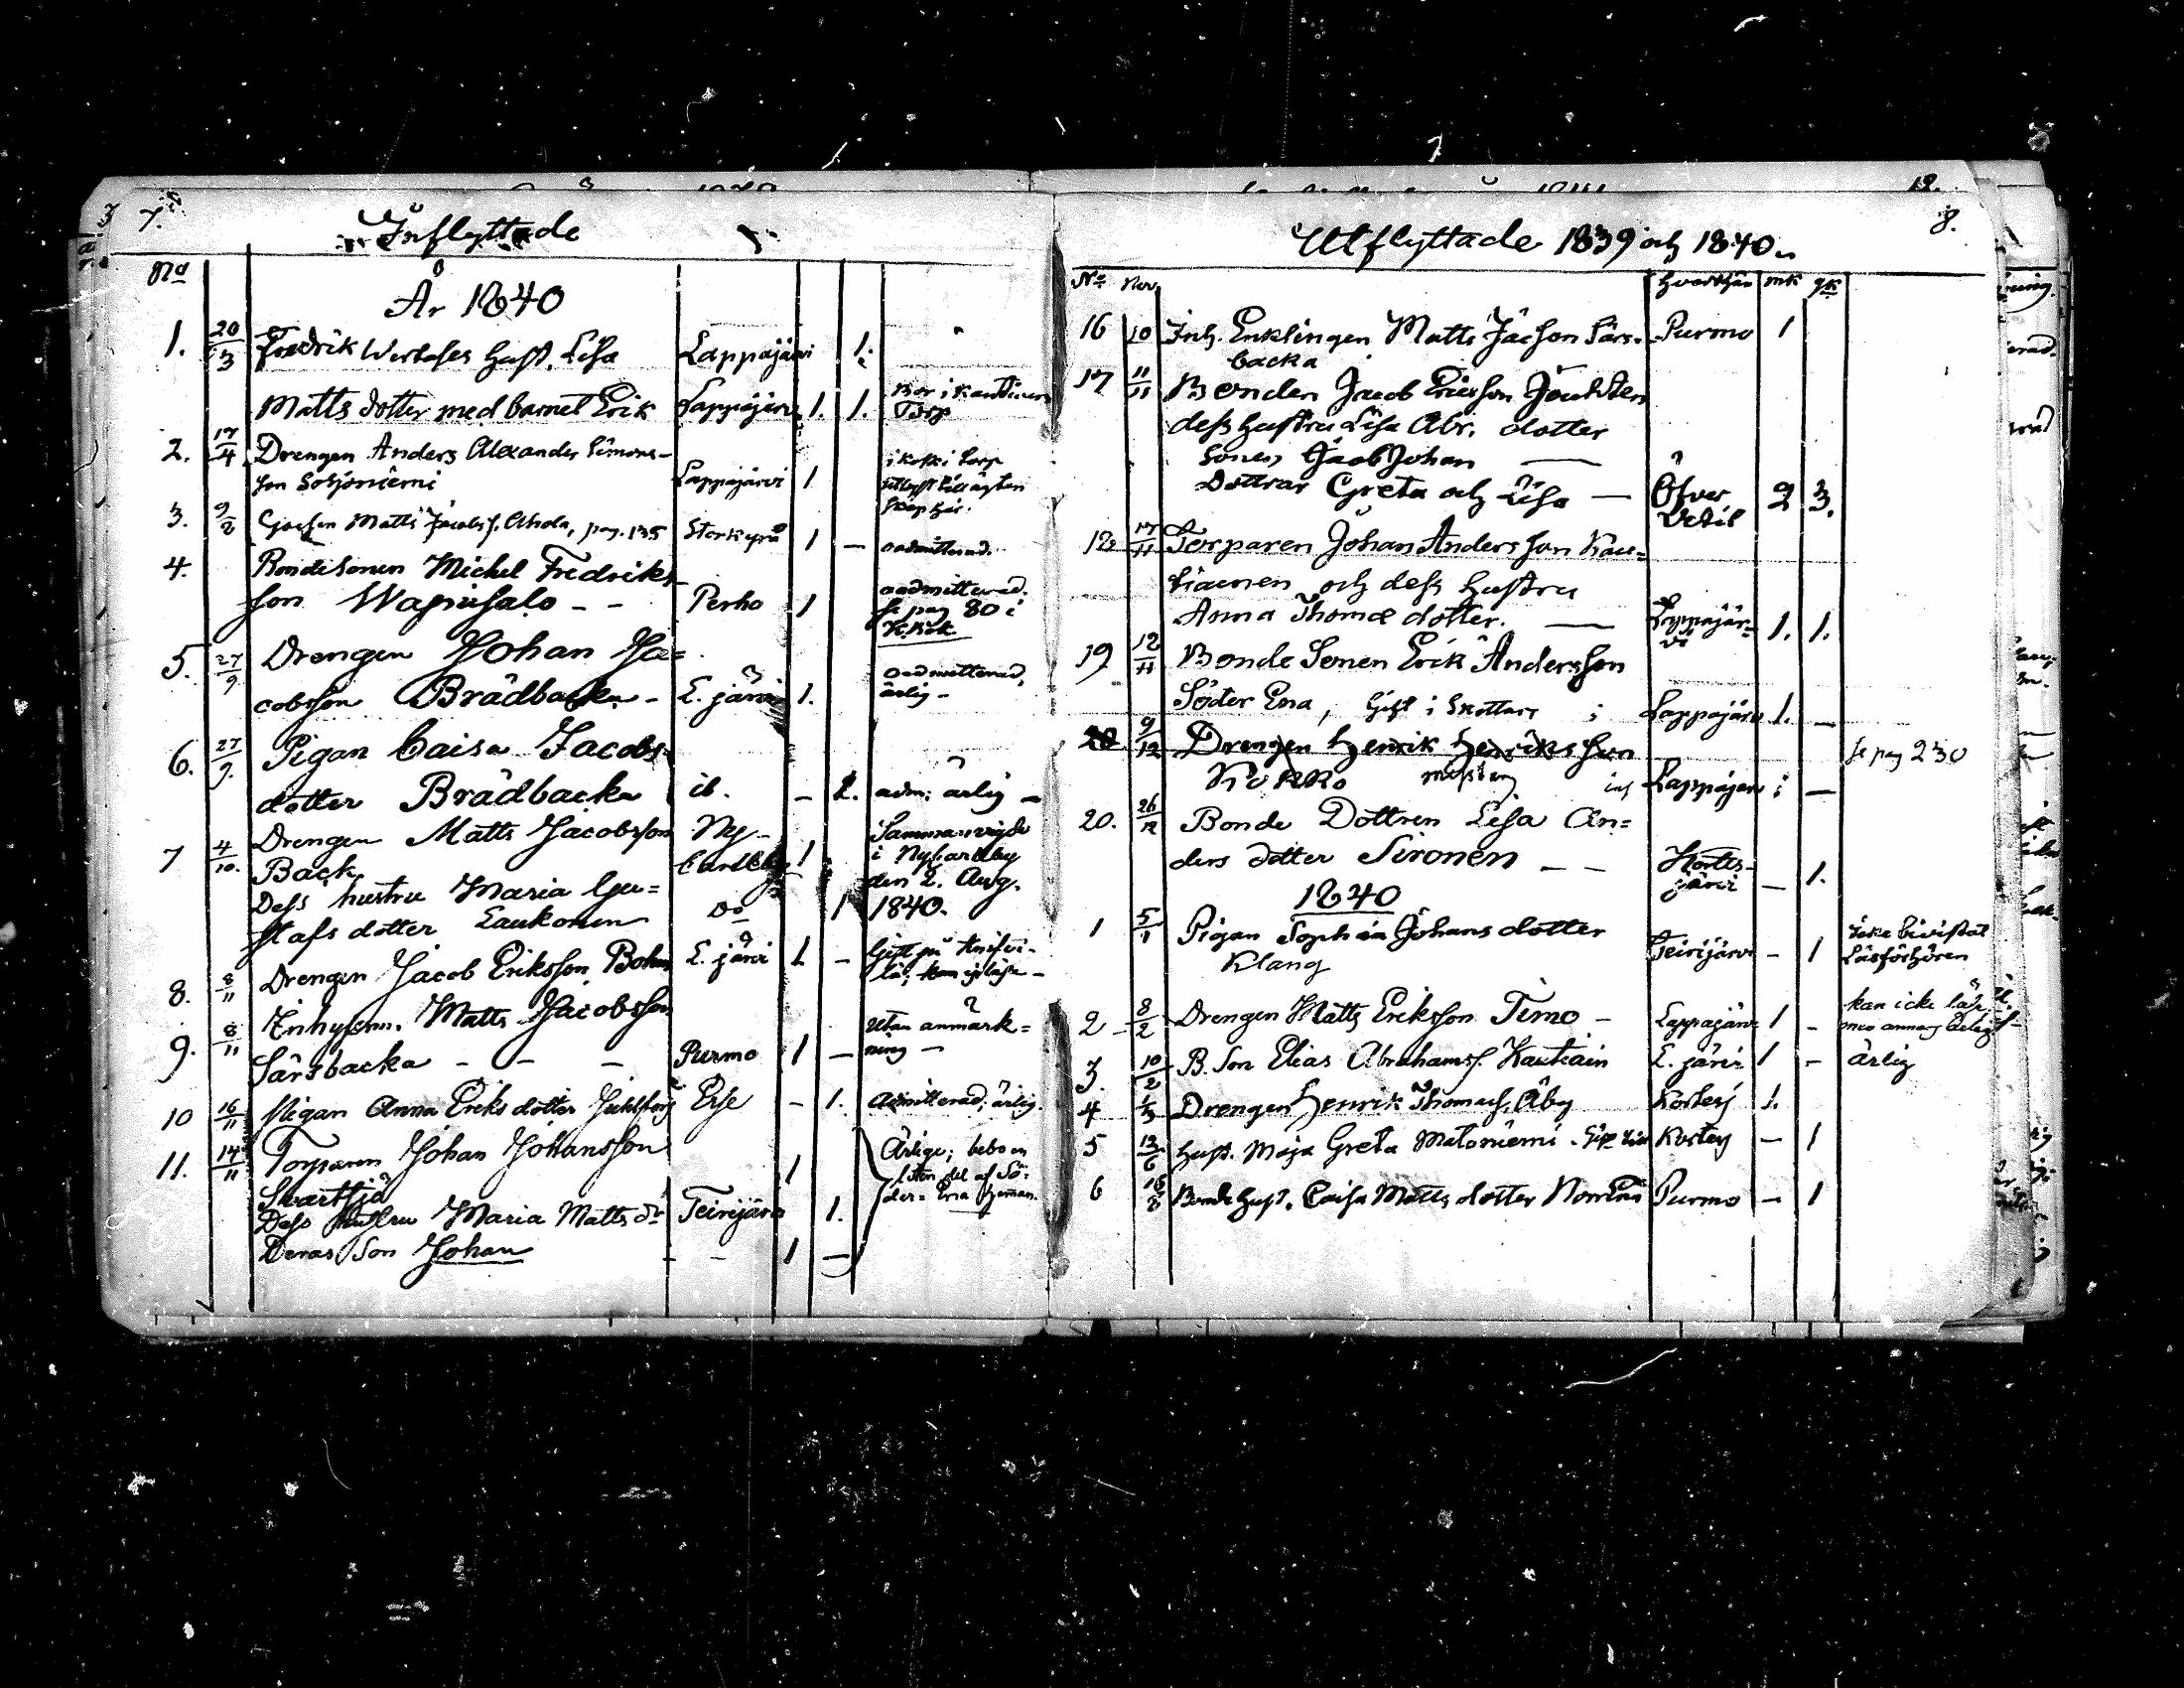 7.
Inflyttade
No
År 1840
1. 20/3 Fredrik Werbeses hust. Lisa Lappajärvi 1.
Matts dotter med barnet Erik Lappajärvi 1. 1. Bor i Kautiainen Torp
2. 17/4 Drengen Anders Alexander Simons-
son Lappajärvi 1
3. 9/2 Matts Jacobss. Ahola, pag. 135 Storkyrå 1 — oadmitterad.
4. Bondesonen Michel Fredriks-
son Wapusalo - - Perho 1 oadmitterad. se pag 80 i
5. 27/9 Drengen Johan Ja=
cobsson Brådbacka - E. järvi 1. oadmitterad, ärlig -
6. 27/9 Pigan Caisa Jacobs
dotter Brådbacka ib. - 1. adm: ärlig -
7 4/10. Drengen Matts Jacobsson Ny-
Back Carleby 1 Sammanvigde i Nykarleby den 2. Aug. 1840.
Dess hustru Maria Gu=
stafs dotter Laukonen Do 1
8. 8/11 Drengen Jacob Eriksson Bohm E. järvi 1 - Gift på
9. 8/11 Inhysem. Matts Jacobsson
Särsbacka - - - Purmo 1 — Utan anmärk=
ning —
10 16/11 Pigan Anna Eriks dotter Esse - 1. Admitterad, ärlig.
11. 14/11 Torparen Johan Johansson 1 Ärlige; bebo en
Svartsjö liten del af Sö-
Dess hustru Maria Matts dr Teirijärvi 1. der= Ena heman.
Deras Son Johan - - 1 —
12.
8.
Utflyttade 1839 och 1840.
No Nov. hvarthän mk qk
16 10 Inh. Enklingen Matts Jacson Särs- Purmo 1
backa
17 11/11 Bonden Jacob Ericsson
dess hustru Lisa Abr. dotter
Sonen Jacob Johan —
Döttrar Greta och Lisa — Öfver Vetil 2 3.
18 17/11 Torparen Johan Andersson Kau=
tiainen och dess hustru
Anna Thomæ dotter. — Lappajär=
vi 1. 1.
19 12/11 Bonde Sonen Erik Andersson
Söder Ena, Gift i Lappajärvi 1. —
20 9/12 Drengen Henrik Henriksson se pag 230
Kokko Lappajärvi 1 —
20. 26/12 Bonde Dottren Lisa An=
ders dotter Sironen - - Kortes-
järvi - 1.
1840
1 5/1 Pigan Sophia Johans dotter
Klang Teirijärvi - 1 Icke bivistat
Läsförhören
2 8/2 Drengen Matts Eriksson Timo - Lappajärvi 1 - kan icke läsa
3. 10/2 B. Son Elias Abrahamss. Kautiain E. järvi 1 - ärlig
4 1/3 Drengen Henrik Thomass. Åby Kortesj 1.
5 12/6 Hust. Maja Greta Matoniemi Kortesj - 1
6 16/8 Bonde hust. Caisa Matts dotter Norr Ena Purmo - 1